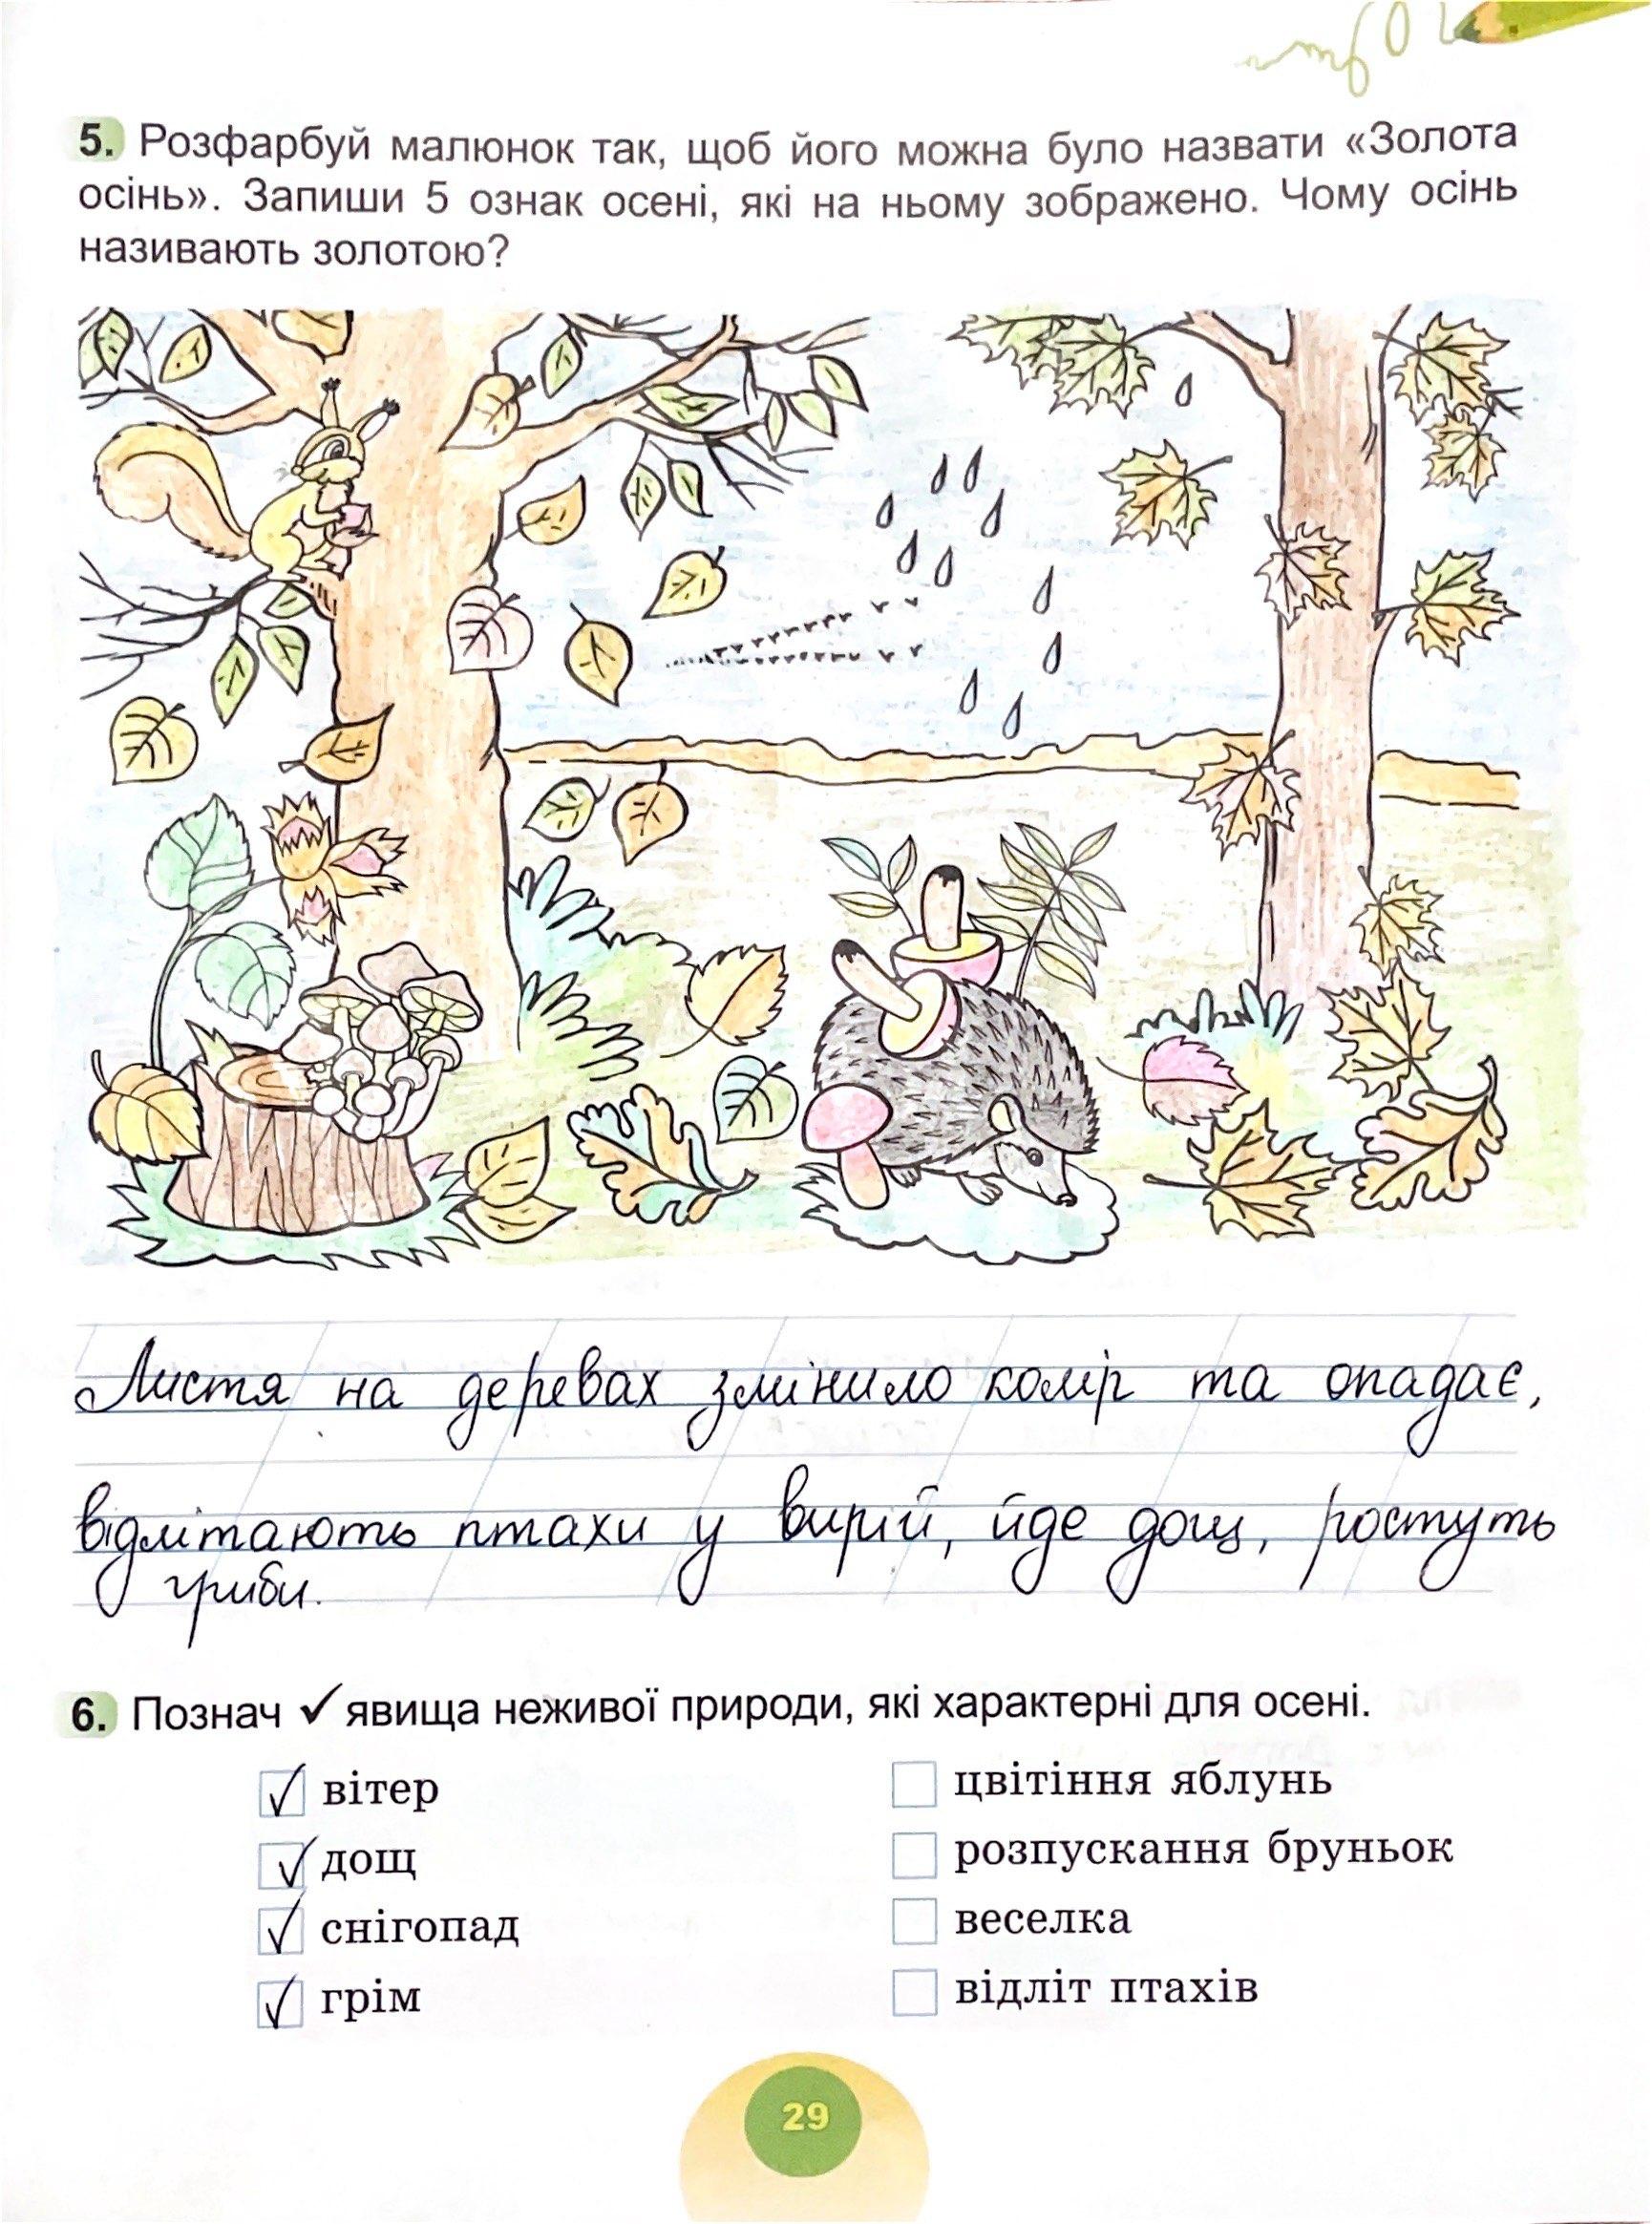 5. Розфарбуй малюнок так, щоб його можна було назвати «Золота
осінь». Запиши 5 ознак осені, які на ньому зображено. Чому осінь
називають золотою?
Листя на деревах змінило колір та опадає,
відлітають птахи у вирій, йде дощ, ростуть
гриби.
6. Познач ✓ явища неживої природи, які характерні для осені.
✓ вітер
✓ дощ
✓ снігопад
✓ грім
цвітіння яблунь
розпускання бруньок
веселка
відліт птахів
29